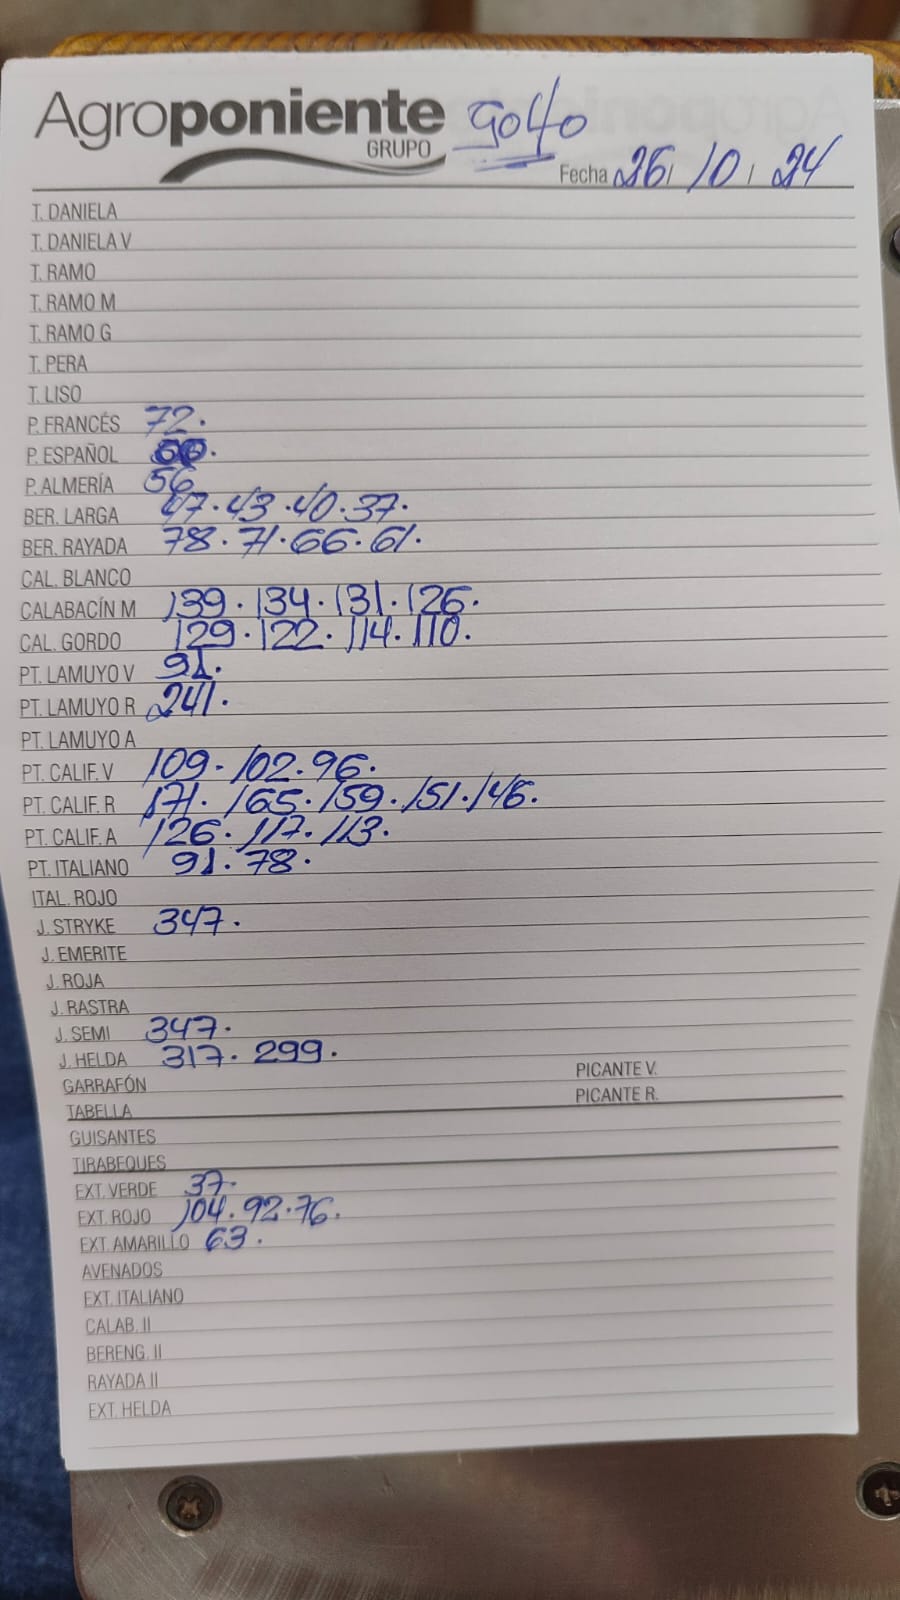 Agroponiente
GRUPO
Golfo
Fecha 26 / 10 / 24
T. DANIELA
T. DANIELA V
T. RAMO
T. RAMO M
T. RAMO G
T. PERA
T. LISO
P. FRANCÉS 72.
P. ESPAÑOL
P. ALMERÍA 56
BER. LARGA 47. 43. 40. 37.
BER. RAYADA 78. 71. 66. 61.
CAL. BLANCO
CALABACÍN M 139. 134. 131. 126.
CAL. GORDO 129. 122. 114. 110.
PT. LAMUYO V 91.
PT. LAMUYO R 241.
PT. LAMUYO A
PT. CALIF. V 109. 102. 96.
PT. CALIF. R 171. 165. 159. 151. 146.
PT. CALIF. A 126. 117. 113.
PT. ITALIANO 91. 78.
ITAL. ROJO
J. STRYKE 347.
J. EMERITE
J. ROJA
J. RASTRA
J. SEMI 347.
J. HELDA 317. 299.
GARRAFÓN PICANTE V.
TABELLA PICANTE R.
GUISANTES
TIRABEQUES
EXT. VERDE 37.
EXT. ROJO 104. 92. 76.
EXT. AMARILLO 63.
AVENADOS
EXT. ITALIANO
CALAB. II
BERENG. II
RAYADA II
EXT. HELDA